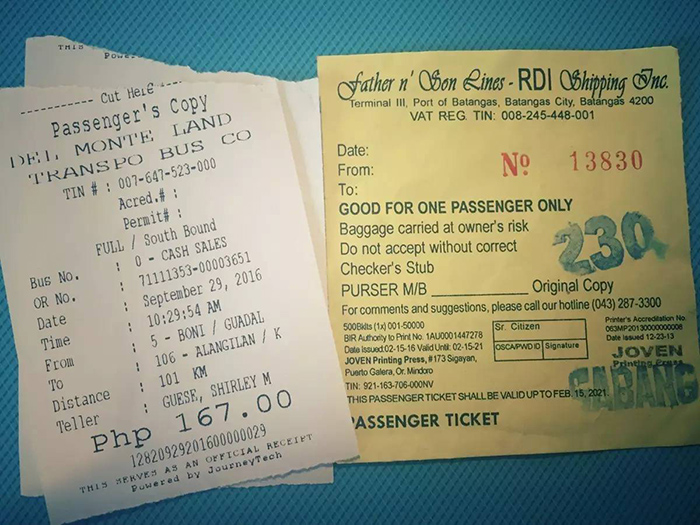 THIS
Power
---------- Cut Here ------
Passenger's Copy
DEL MONTE LAND
TRANSPO BUS CO
TIN # : 007-647-523-000
Acred.# :
Permit# :
FULL / South Bound
: 0 - CASH SALES
Bus No. : 71111353-00003651
OR No. : September 29, 2016
Date : 10:29:54 AM
Time : 5 - BONI / GUADAL
From : 106 - ALANGILAN / K
To : 101 KM
Distance : GUESE, SHIRLEY M
Teller
Php 167.00
12820929201600000029
THIS SERVES AS AN OFFICIAL RECEIPT
Powered by JourneyTech
Father n' Son Lines - RDI Shipping Inc.
Terminal III, Port of Batangas, Batangas City, Batangas 4200
VAT REG. TIN: 008-245-448-001
Date:
From:
Nº 13830
To:
GOOD FOR ONE PASSENGER ONLY
Baggage carried at owner's risk
Do not accept without correct
Checker's Stub
230
PURSER M/B ____________ Original Copy
For comments and suggestions, please call our hotline (043) 287-3300
500Bklts (1x) 001-50000
BIR Authority to Print No. 1AU0001447278
Date Issued:02-15-16 Valid Until: 02-15-21
JOVEN Printing Press, #173 Sigayan,
Puerto Galera, Or. Mindoro
TIN: 921-163-706-000NV
Sr. Citizen
OSCA/PWD ID Signature
Printer's Accreditation No.
063MP20130000000008
Date Issued 12-23-13
JOVEN
Printing Press
SABANG
THIS PASSENGER TICKET SHALL BE VALID UP TO FEB. 15, 2021
PASSENGER TICKET